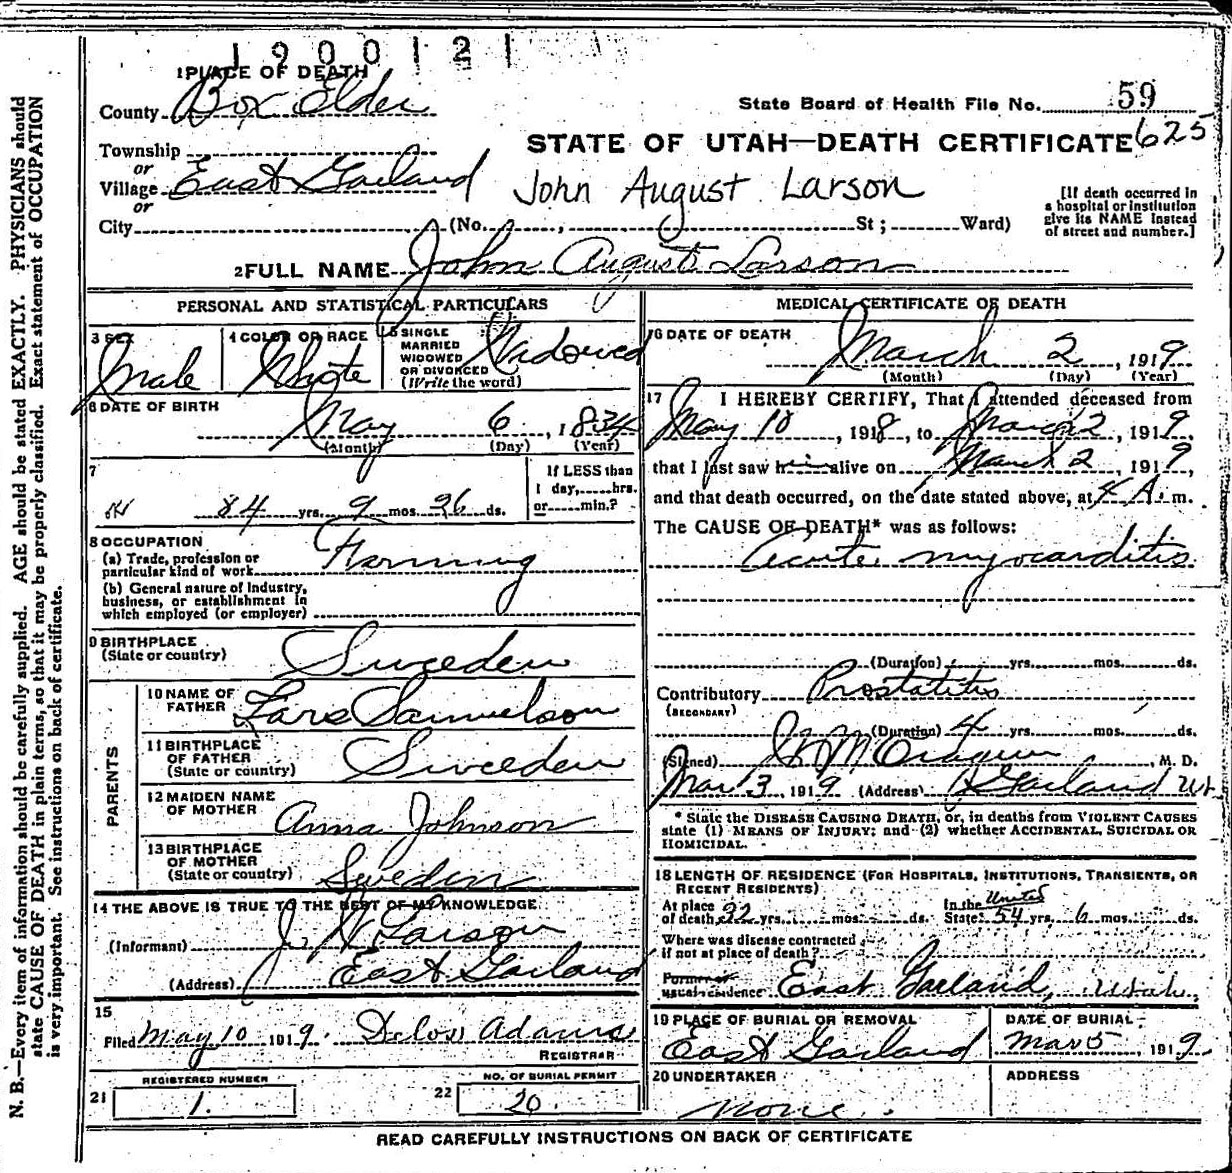 1900121
1 PLACE OF DEATH
County Box Elder
State Board of Health File No. 59
Township
STATE OF UTAH—DEATH CERTIFICATE 625
or
Village East Garland
John August Larson
[If death occurred in
a hospital or institution
give its NAME instead
of street and number.]
or
City (No. , St ; Ward)
2 FULL NAME John August Larson
PERSONAL AND STATISTICAL PARTICULARS
3 SEX
Male
4 COLOR OR RACE
White
5 SINGLE
MARRIED
WIDOWED
OR DIVORCED
(Write the word)
Widowed
6 DATE OF BIRTH
May 6, 1834
(Month) (Day) (Year)
7
84 yrs. 9 mos. 26 ds.
If LESS than
1 day, hrs.
or min.?
8 OCCUPATION
(a) Trade, profession or
particular kind of work Farming
(b) General nature of industry,
business, or establishment in
which employed (or employer)
9 BIRTHPLACE
(State or country) Sweden
PARENTS
10 NAME OF
FATHER Lars Samuelson
11 BIRTHPLACE
OF FATHER
(State or country) Sweden
12 MAIDEN NAME
OF MOTHER Anna Johnson
13 BIRTHPLACE
OF MOTHER
(State or country) Sweden
14 THE ABOVE IS TRUE TO THE BEST OF MY KNOWLEDGE
(Informant) J. W. Larson
(Address) East Garland
15
Filed May 10 1919. Delos Adams
REGISTRAR
REGISTERED NUMBER
21 1.
NO. OF BURIAL PERMIT
22 20
MEDICAL CERTIFICATE OF DEATH
16 DATE OF DEATH
March 2, 1919
(Month) (Day) (Year)
17 I HEREBY CERTIFY, That I attended deceased from
May 18, 1918, to March 2, 1919,
that I last saw him alive on March 2, 1919,
and that death occurred, on the date stated above, at 4 A. m.
The CAUSE OF DEATH* was as follows:
acute myocarditis
(Duration) yrs. mos. ds.
Contributory Prostatitis
(SECONDARY)
(Duration) 4 yrs. mos. ds.
(Signed) , M. D.
Mar 3, 1919 (Address) Garland Ut.
* State the DISEASE CAUSING DEATH, or, in deaths from VIOLENT CAUSES
state (1) MEANS OF INJURY; and (2) whether ACCIDENTAL, SUICIDAL OR
HOMICIDAL.
18 LENGTH OF RESIDENCE (FOR HOSPITALS, INSTITUTIONS, TRANSIENTS, OR
RECENT RESIDENTS)
At place
of death 22 yrs. mos. ds.
In the United
State 54 yrs. 6 mos. ds.
Where was disease contracted
if not at place of death?
Former or
usual residence East Garland, Utah,
19 PLACE OF BURIAL OR REMOVAL
East Garland
DATE OF BURIAL
Mar 5, 1919
20 UNDERTAKER
none.
ADDRESS
READ CAREFULLY INSTRUCTIONS ON BACK OF CERTIFICATE
N. B.—Every item of information should be carefully supplied. AGE should be stated EXACTLY. PHYSICIANS should
state CAUSE OF DEATH in plain terms, so that it may be properly classified. Exact statement of OCCUPATION
is very important. See instructions on back of certificate.